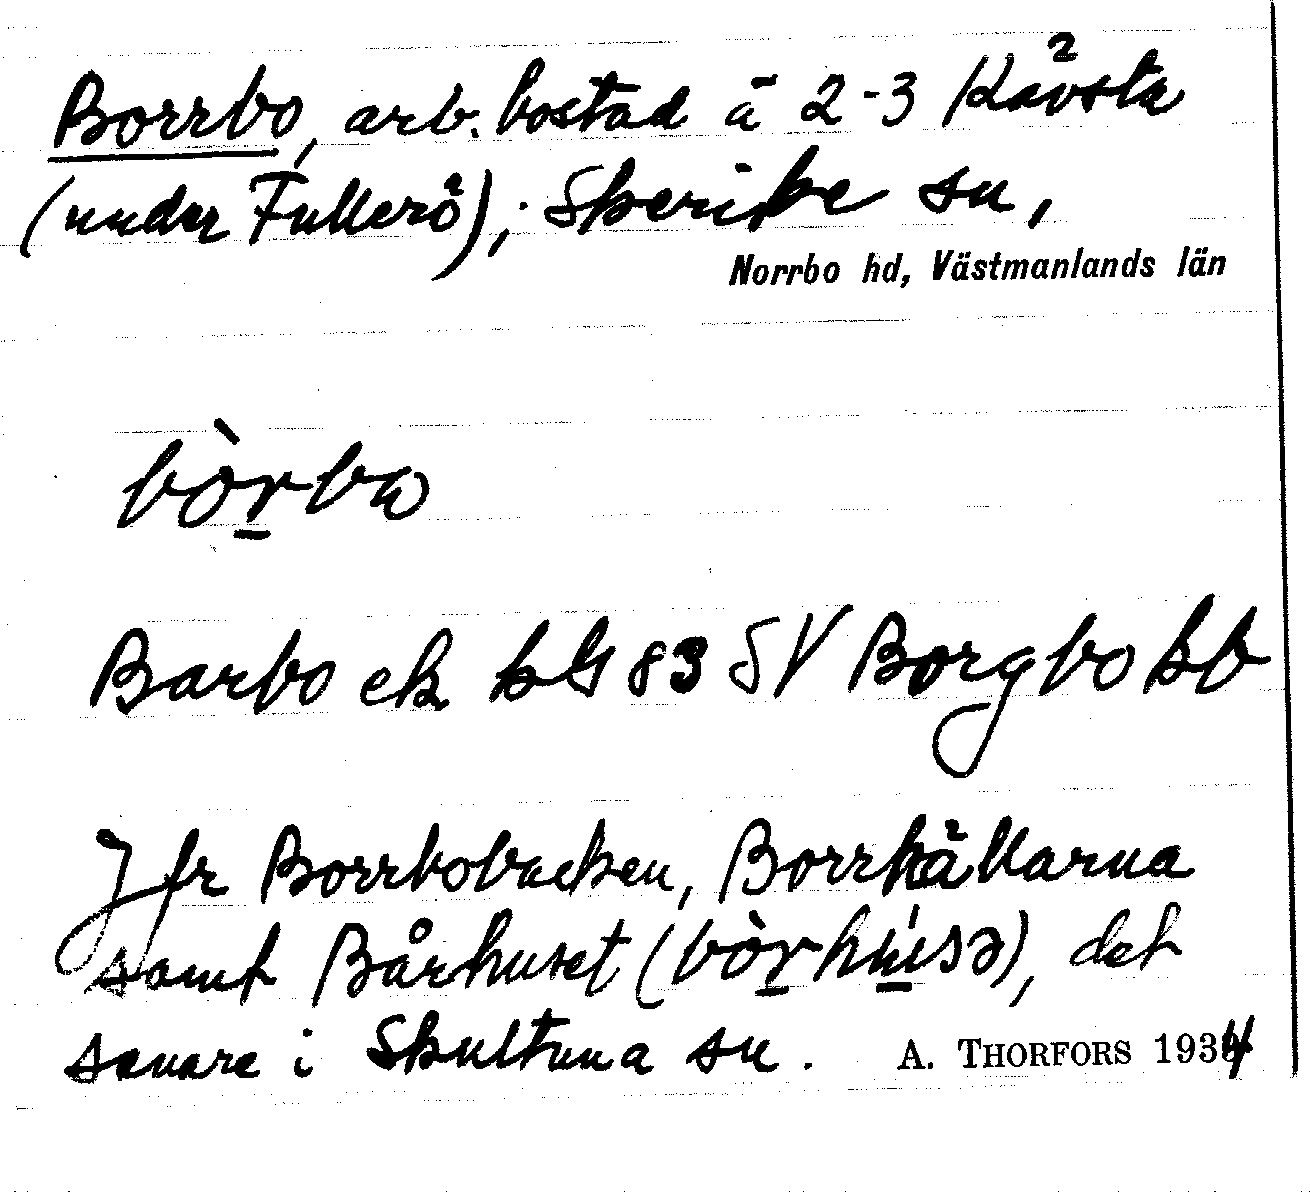 Borrbo, arb. bostad å 2-3 Kävsta
(under Fullerö), Skerike sn,
Norrbo hd, Västmanlands län
bòrbω
Barbo ek bl 83 SV Borgbo kb
Jfr Borrbobacken, Borrkällarna
samt Bårhuset (bòrhúsə), det
senare i Skultuna sn.
A. THORFORS 1934